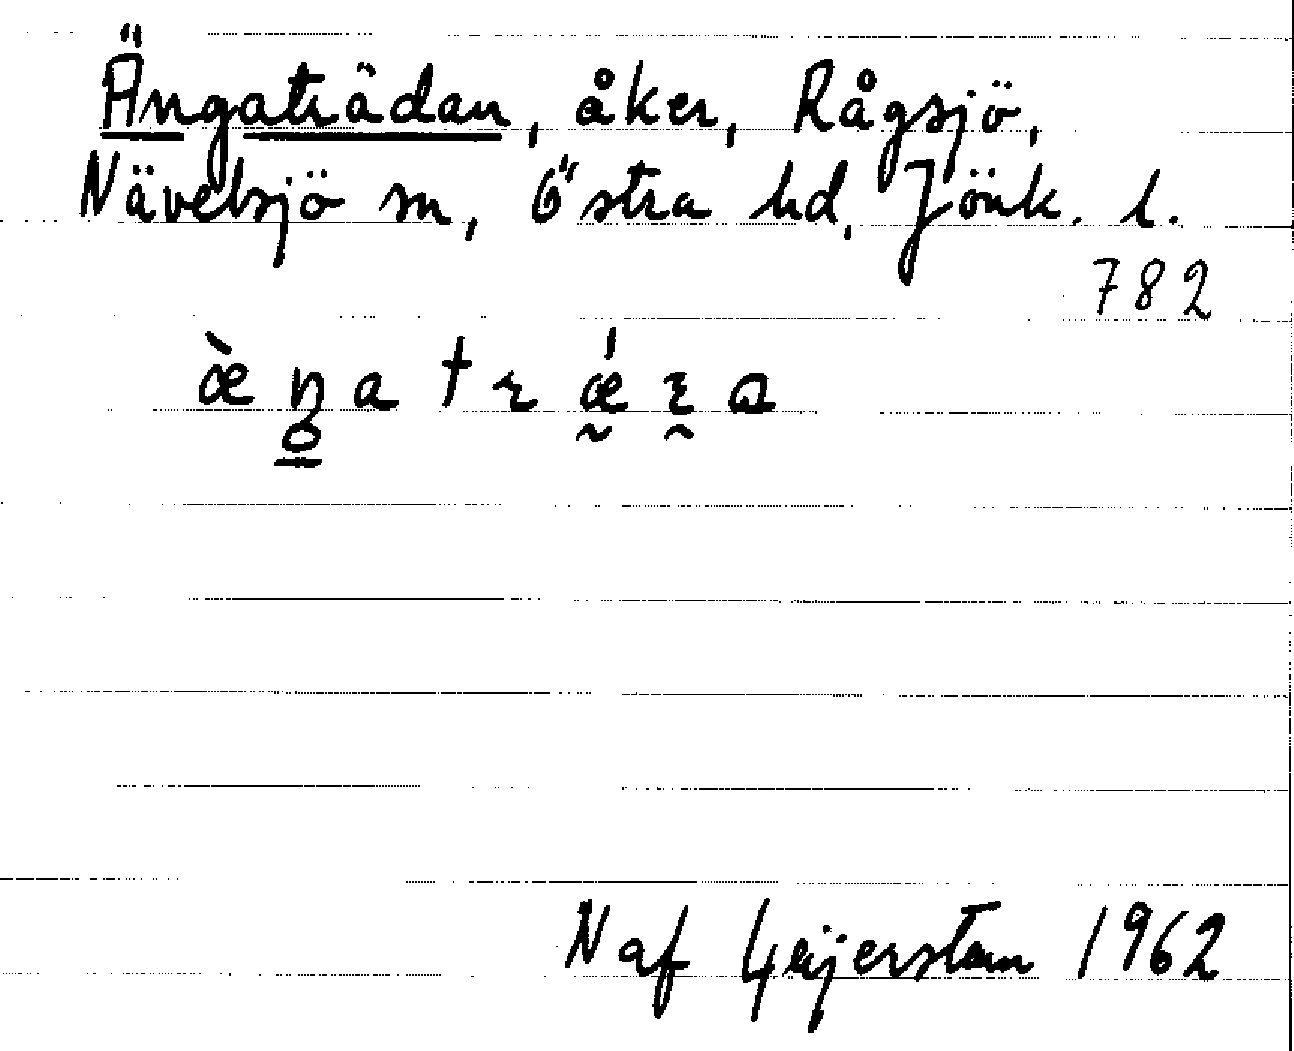 Ängaträdan, åker, Rågsjö,
Nävelsjö sn, Östra hd, Jönk. l.
782
N af Geijerstam 1962